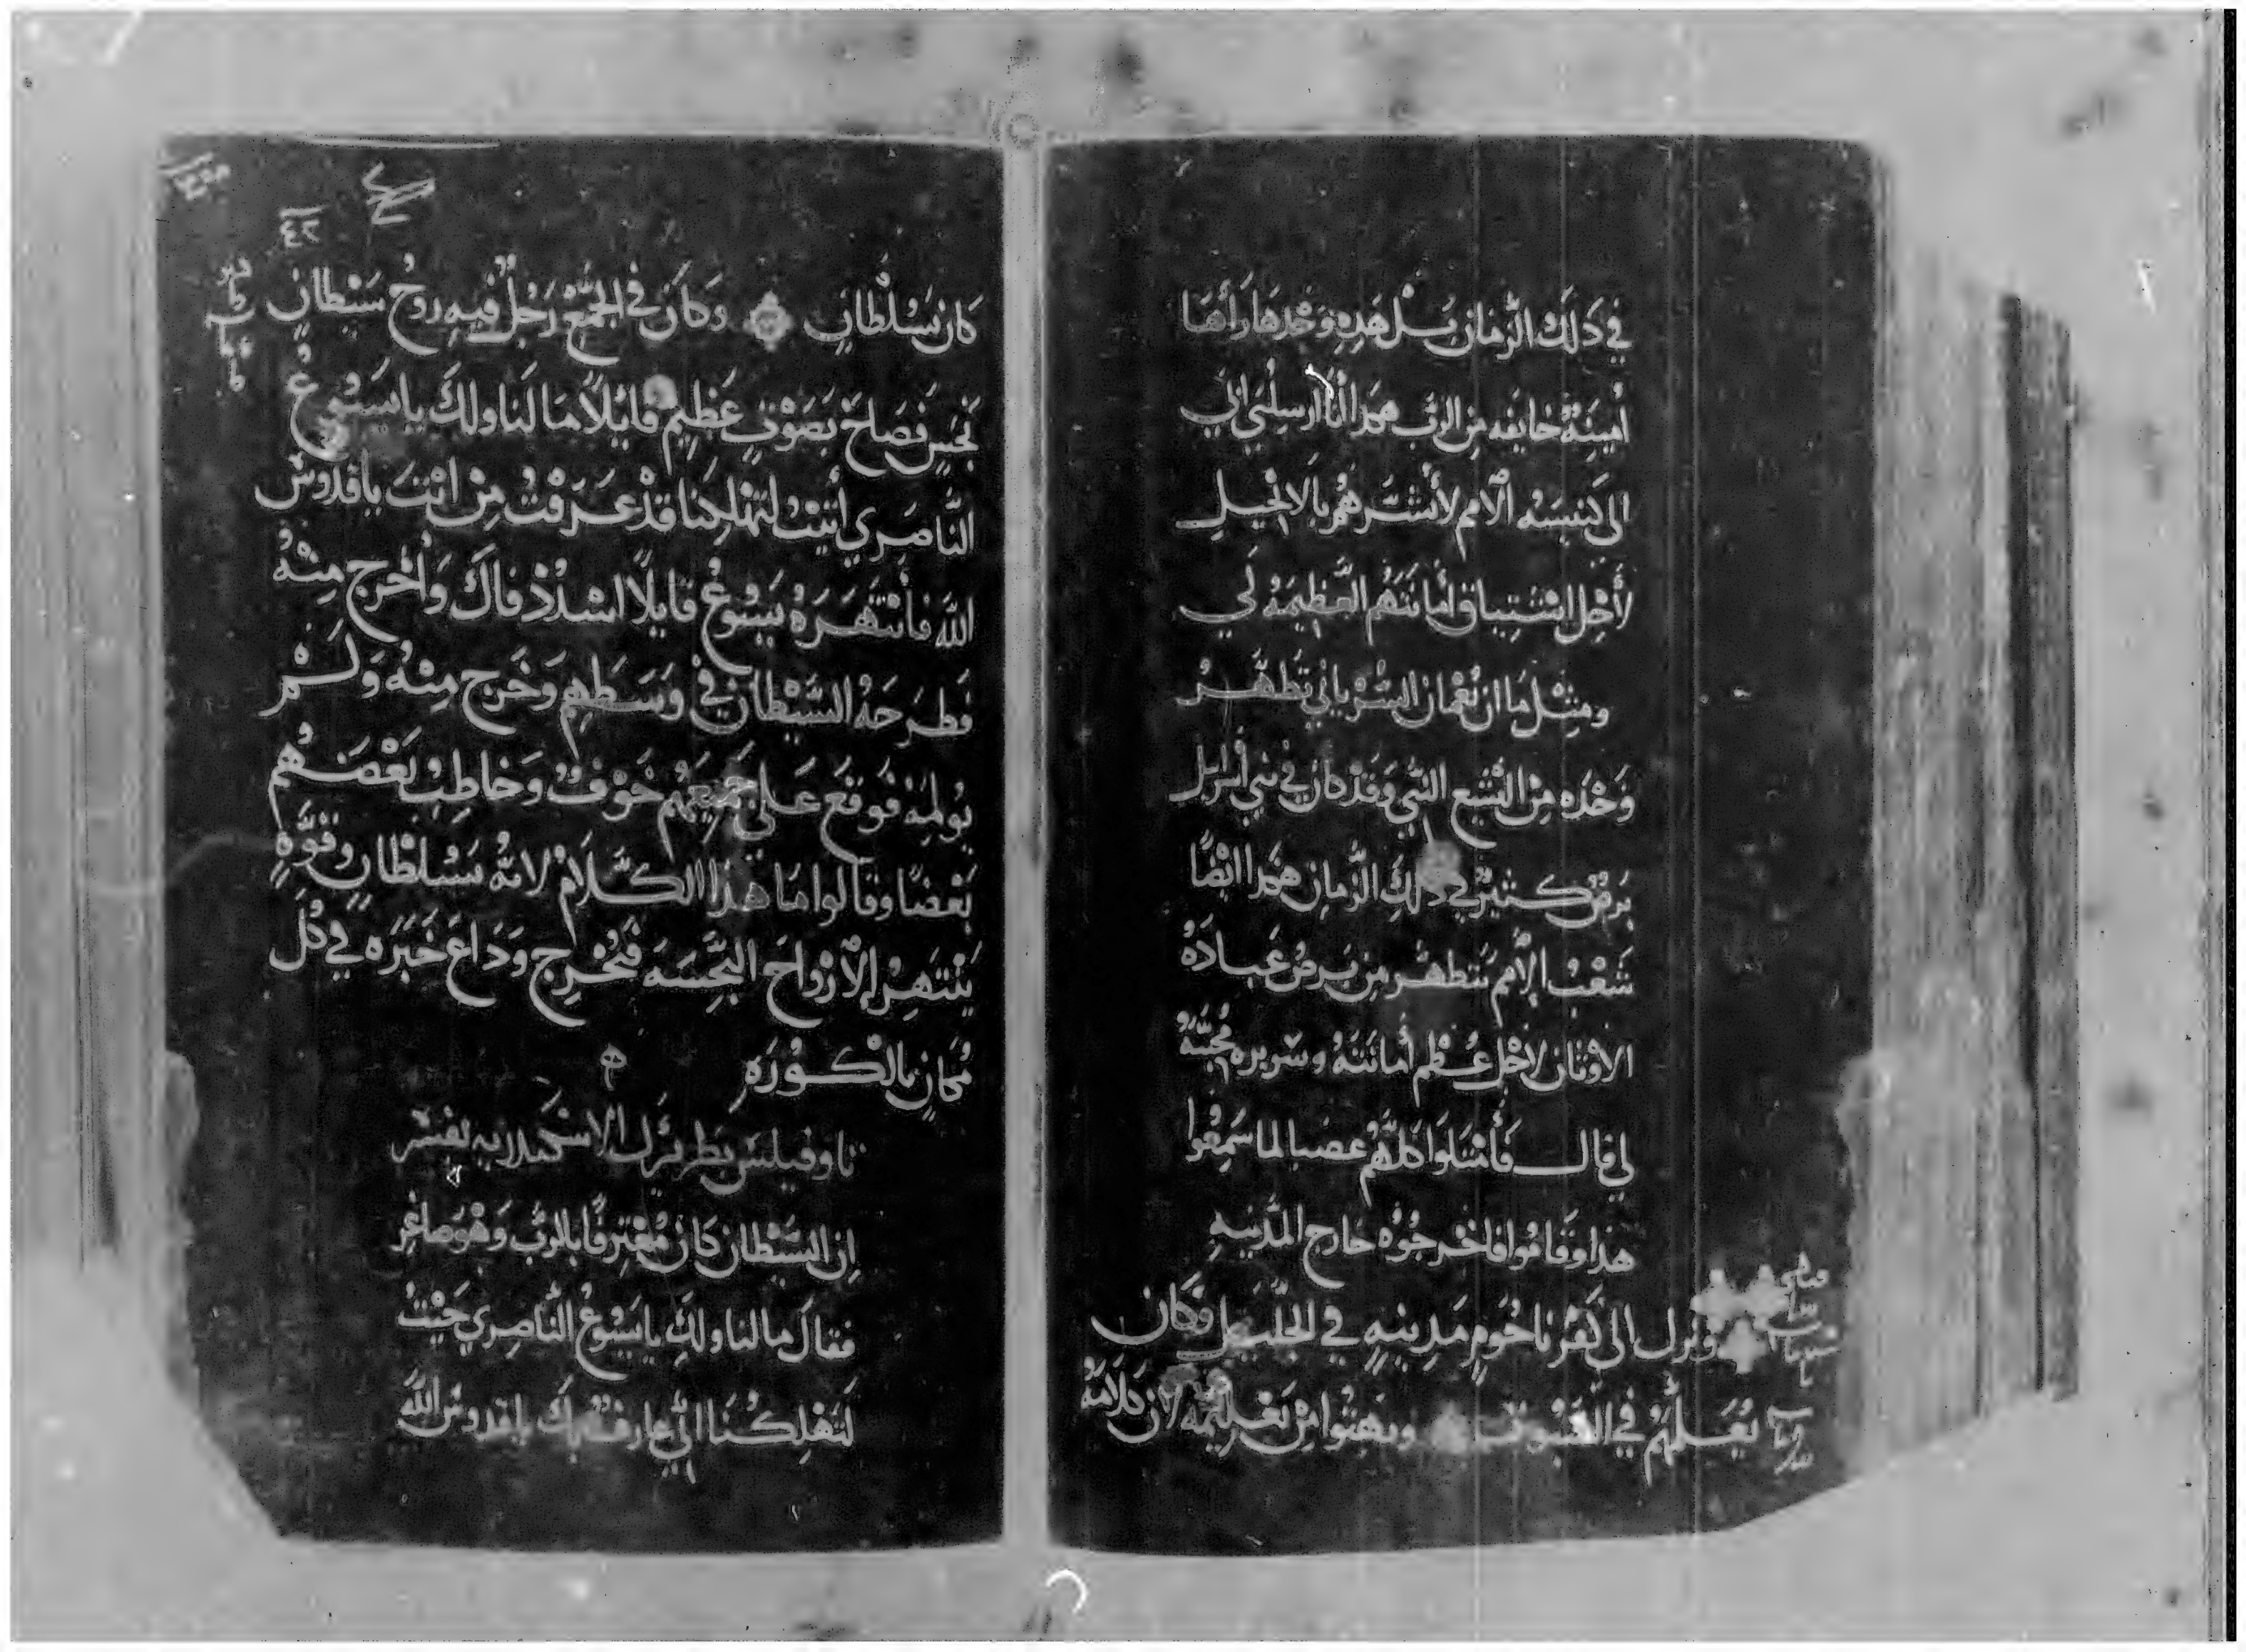 في ذلك الزمان بل هذه وحدها رأها
أمينة خايفه من الرب هكذا انا ارسلني اي
الى كنيسه الامم لأبشرهم بالانجيل
لأجل اشتياق أمانتهم العظيمه لي
ومثل ما ان نعمان السرياني تطهر
وحده من اليشع النبي وقد كان في بني اسرايل
برص كثير في ذلك الزمان هكذا ايضا
شعب الأمم تتطهر من برص عباده
الاوثان لاجل عظم أمانته وسريره محبته
لي قال فأمتلوا كلهم غضبا لما سمعوا
هذا وقاموا فاخرجوه خارج المدينه
ونزل الى كفرناحوم مدينه في الجليل وكان
يعلمهم في السبوت وبهتوا من تعليمه لان كلامه
٤٢
كان بسلطان وكان في المجمع رجل فيه روح سيطان
نجس فصاح بصوت عظيم قايلا ما لنا ولك يا يسوع
الناصري أتيت لتهلكنا قد عرفت من انت يا قدوس
الله فأنتهره يسوع قايلا اسدد فاك وأخرج منه
فطرحه السيطان في وسطهم وخرج منه ولم
يولمه فوقع على جميعهم خوف وخاطب بعضهم
بعضا وقالوا ما هذا الكلام لانه بسلطان وقوة
ينتهر الأرواح النجسه فتخرج وذاع خبره في كل
مكان بالكوره
تاوفيلس بطريرك الاسكندريه تفسره
ان السيطان كان معترفا بالرب وهو صاغر
فقال ما لنا ولك يا يسوع الناصري جيت
لتهلكنا اني عارف بك يا قدوس الله